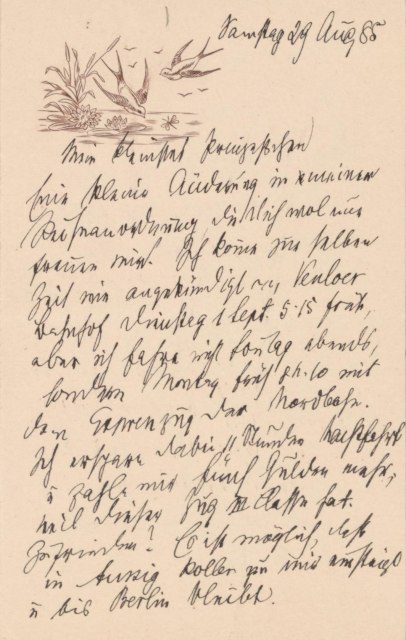 Samstag 29 Aug 85
Mein kleinstes Prinzeßchen
Eine kleine Änderung in meiner
Reiseanordnung, die dich wol nur
freuen wird. Ich kome zur selben
Zeit wie angekündigt am Venloer
Bahnhof Dienstag 1 Sept. 5·15 früh,
aber ich fahre nicht Sontag abends,
sondern Montag früh 8h.10 mit
dem Expresszug der Nordbahn.
Ich erspare dabei Stunden Nachtfahrt
u zahle nur fünf Gulden mehr,
weil dieser Zug III Classe hat.
Zufrieden? Es ist möglich, daß
in Aussig Koller zu mir einsteigt
u bis Berlin bleibt.